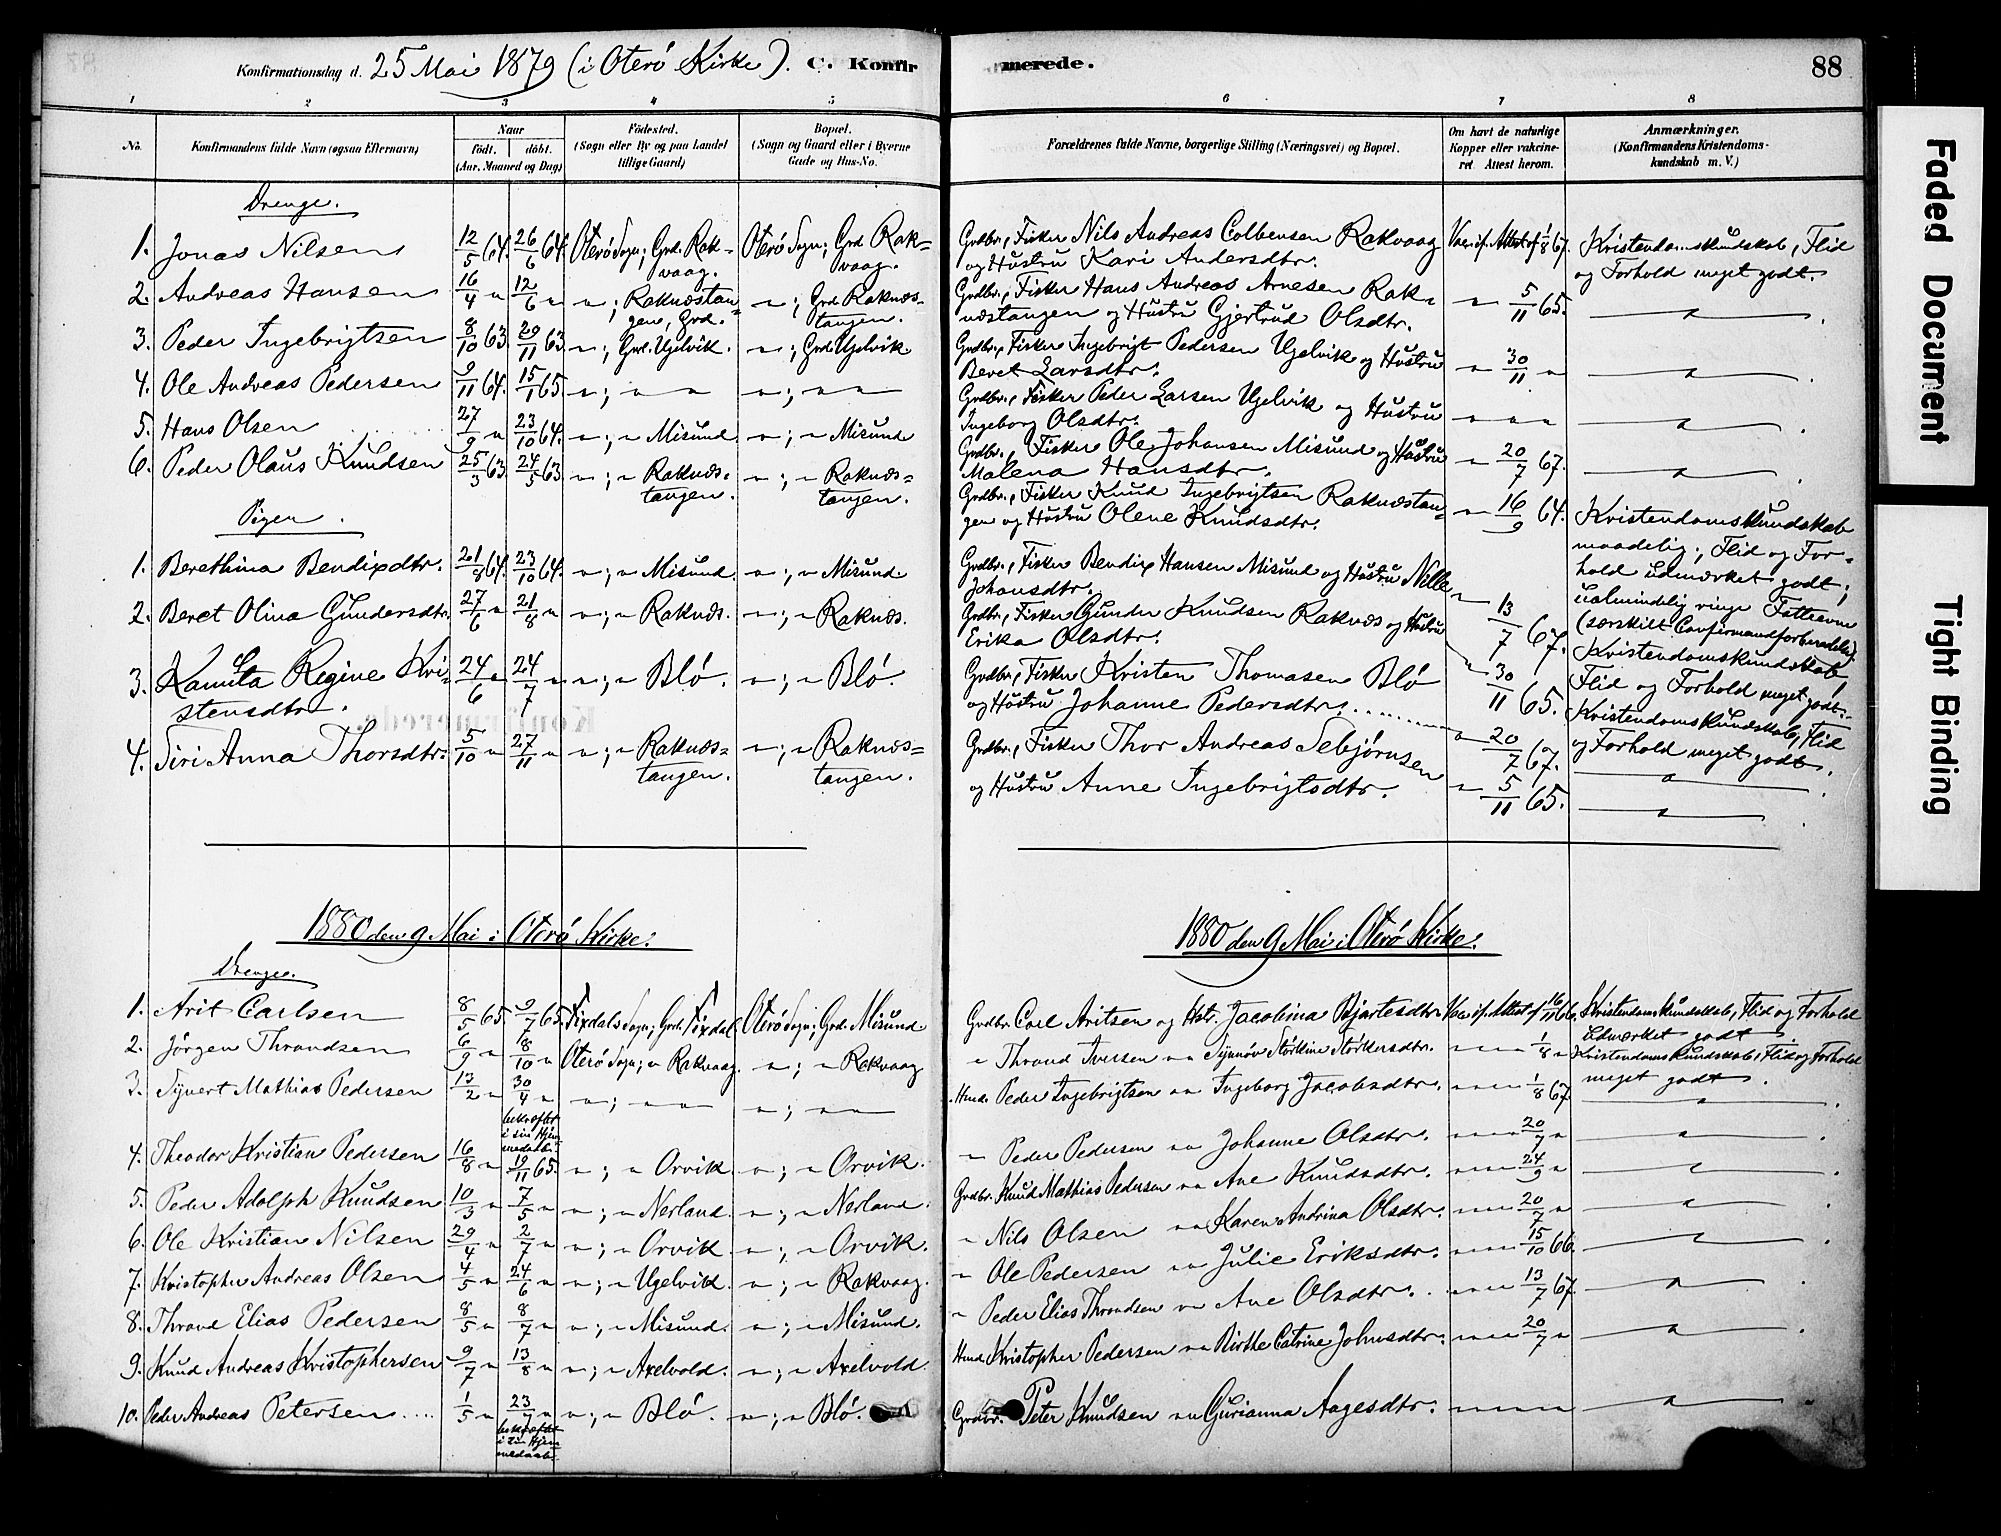 Konfirmationsdag d. 25 Mai 1879 (i Oterö Kirke). C. Konfir
merede. 88
1 2 3 4 5 6 7 8
No.
Konfirmandens fulde Navn (ogsaa Efternavn)
Naar
födt. döbt.
(Aar, Maaned og Dag)
Födested.
(Sogn eller By og paa Landet
tillige Gaard)
Bopæl.
(Sogn og Gaard eller i Byerne
Gade og Hus-No.
Forældrenes fulde Navne, borgerlige Stilling (Næringsvei) og Bopæl.
Om havt de naturlige
Kopper eller vakcine-
ret. Attest herom.
Anmærkninger.
(Konfirmandens Kristendoms-
kundskab m. V.)
Drenge.
1. Jonas Nilsen 12/5 64. 26/6 64. Oterö Sogn; Grd. Rak-
vaag.
Oterö Sogn; Grd Rak-
vaag.
2. Andreas Hansen 16/4 " 12/6 " " ; Raknæstan-
gen, Grd.
" ; Grd Raknæs-
tangen.
3. Peder Ingebrigtsen 8/10 63 29/11 63 " ; Grd. Ugelvik. " ; Grd Ugelvik
4. Ole Andreas Pedersen 9/11 64. 15/1 65. " ; " " " ; " "
5. Hans Olsen 27/9 " 23/10 64. " ; " Misund " ; " Misund
6. Peder Olaus Knudsen 25/3 63 24/5 63 " ; " Raknæs-
tangen.
" ; " Raknæs-
tangen.
Pigen.
1. Berethina Bendixdtr. 21/8 64. 23/10 64. " ; " Misund. " ; " Misund.
2. Beret Olina Gundersdtr. 27/6 " 21/8 " " ; " Raknæs. " ; " Raknæs.
3. Kamita Regine Kri-
stensdtr.
24/6 " 24/7 " " ; " Blö. " ; " Blö.
4. Siri Anna Thorsdtr. 5/10 " 27/11 " " ; " Raknæs-
tangen.
" ; " Raknæs-
tangen.
Grdbr., Fisker Nils Andreas Colbensen Rakvaag
og Hustru Kari Andersdtr.
Vac. if. Attest af 1/8 67.
Kristendomskundskab, Flid
og Forhold meget godt.
Grdbr., Fisker Hans Andreas Arnesen Rak-
næstangen og Hustru Gjertrud Olsdtr.
" 5/11 65.
Grdbr., Fisker Ingebrigt Pedersen Ugelvik og Hustru
Beret Larsdtr.
" 30/11 "
Grdbr., Fisker Peder Larsen Ugelvik og Hustru
Ingeborg Olsdtr.
" " "
Grdbr., Fisker Ole Johansen Misund og Hustru
Malena Hansdtr.
" 20/7 67.
Grdbr., Fisker Knud Ingebrigtsen Raknæstan-
gen og Hustru Olene Knudsdtr.
" 16/9 64.
Kristendomskundskab
maadelig; Flid og For-
hold udmærket godt;
ualmindelig ringe Fatteevne
(særskilt Confirmandforberedelse).
Grdbr., Fisker Bendix Hansen Misund og Hustru Nille
Johansdtr.
" 13/7 67.
Kristendomskundskab,
Flid og Forhold meget godt.
Grdbr., Fisker Gunder Knudsen Raknæs og Hustru
Erika Olsdtr.
" 30/11 65.
Kristendomskundskab, Flid
og Forhold meget godt.
Grdbr., Fisker Kristen Thomasen Blö
og Hustru Johanne Pedersdtr.
" 20/7 67.
Grdbr., Fisker Thor Andreas Sebjörnsen
og Hustru Anne Ingebrigtsdtr.
" 5/11 65.
1880 den 9 Mai i Oterö Kirke.
1880 den 9 Mai i Oterö Kirke.
Drenge.
1. Arit Carlsen 8/5 65 9/7 65. Tixdals Sogn; Grd. Tixdal. Oterö Sogn; Grd. Misund
2. Jörgen Throndsen 6/9 " 8/10 " Oterö Sogn; " Rakvaag. " ; " Rakvaag
3. Syvert Mathias Pedersen 13/2 " 30/4 " " ; " " " ; " "
bekræftet
i sin Hjem-
medaab
4. Theodor Kristian Pedersen 16/8 " 19/11 65. " ; " Orvik. " ; " Orvik.
5. Peder Adolph Knudsen 10/3 " 7/5 " " ; " Nerland. " ; " Nerland.
6. Ole Kristian Nilsen 29/4 " 2/7 " " ; " Orvik " ; " Orvik.
7. Kristopher Andreas Olsen 4/5 " 24/6 " " ; " Ugelvik. " ; " Rakvaag.
8. Thrond Elias Pedersen 8/5 " 8/7 " " ; " Misund. " ; " Misund.
9. Knud Andreas Kristophersen 9/7 " 13/8 " " ; " Axelvold. " ; " Axelvold.
10. Peder Andreas Petersen.... 1/5 " 23/7 " " ; " Blö. " ; " Blö.
bekræftet
i sin Hjem-
medaab
Grdbr. Carl Aritsen og Hstr. Jacobina Bjartesdtr. Vac. if. Attest af 16/11 66. Kristendomskundskab, Flid og Forhold
udmærket godt.
" Thrond Iversen " " Synnöv Störkine Störkersdtr. " " " 1/8 " Kristendomskundskab, Flid og Forhold
meget godt.
Hmd. Peder Ingebrigtsen " " Ingeborg Jacobsdtr. " " " 1/8 67
" Peder Pedersen " " Johanne Olsdtr. " " " 20/7 "
Grdbr. Knud Mathias Pedersen " " Ane Knudsdtr. " " " 24/9 "
" Nils Olsen " " Karen Andrina Olsdtr. " " " 20/7 "
" Ole Pedersen " " Julie Eriksdtr. " " " 15/10 66.
" Peder Elias Throndsen " " Ane Olsdtr. " " " 13/7 67
Hmd. Kristopher Pedersen " " Birthe Catrine Johnsdtr. " " " 20/7 "
Grdbr. Peter Knudsen " " Gurianna Aagesdtr. " " " "
Faded Document
Tight Binding